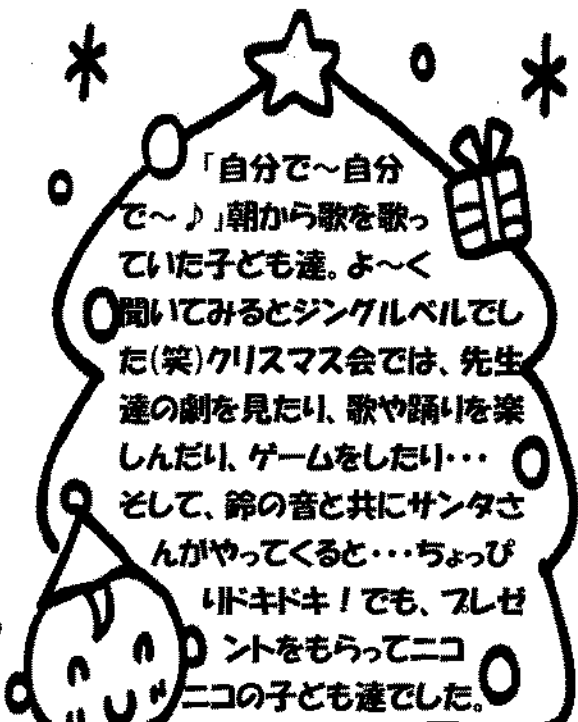 「自分で～自分
で～♪」朝から歌を歌っ
ていた子ども達。よ～く
聞いてみるとジングルベルでし
た(笑)クリスマス会では、先生
達の劇を見たり、歌や踊りを楽
しんだり、ゲームをしたり・・・
そして、鈴の音と共にサンタさ
んがやってくると・・・ちょっぴ
りドキドキ！でも、プレゼ
ントをもらってニコ
ニコの子ども達でした。